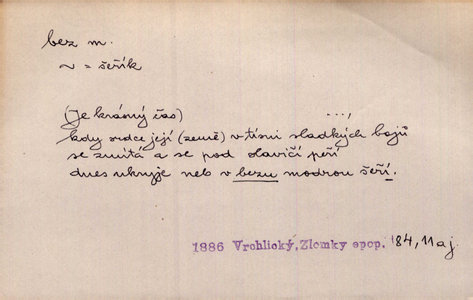 bez m.
~ = šeřík
(Je krásný čas) ...,
kdy srdce její (země) v tísni sladkých bojů
se zmítá a se pod slavičí peří
dnes ukryje neb v bezu modrou šeří.
1886 Vrchlický, Zlomky epop. 184, Maj